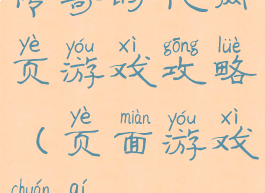 yè yóu xì gōng lüè
页游戏攻略
yè miàn yóu xì
(页面游戏
chuán qí